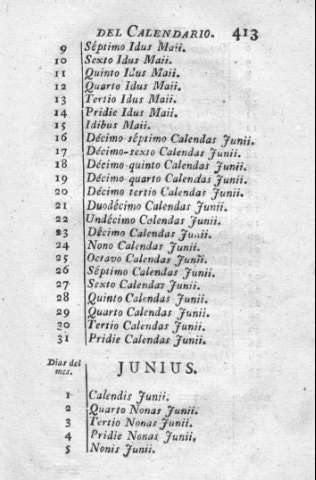 DEL CALENDARIO. 413
9 Séptimo Idus Maii.
10 Sexto Idus Maii.
11 Quinto Idus Maii.
12 Quarto Idus Maii.
13 Tertio Idus Maii.
14 Pridie Idus Maii.
15 Idibus Maii.
16 Décimo séptimo Calendas Junii.
17 Décimo-sexto Calendas Junii.
18 Décimo quinto Calendas Junii.
19 Décimo quarto Calendas Junii.
20 Décimo tertio Calendas Junii.
21 Duodécimo Calendas Junii.
22 Undécimo Calendas Junii.
23 Décimo Calendas Junii.
24 Nono Calendas Junii.
25 Octavo Calendas Junii.
26 Séptimo Calendas Junii.
27 Sexto Calendas Junii.
28 Quinto Calendas Junii.
29 Quarto Calendas Junii.
30 Tertio Calendas Junii.
31 Pridie Calendas Junii.
Dias del mes. JUNIUS.
1 Calendis Junii.
2 Quarto Nonas Junii.
3 Tertio Nonas Junii.
4 Pridie Nonas Junii.
5 Nonis Junii.